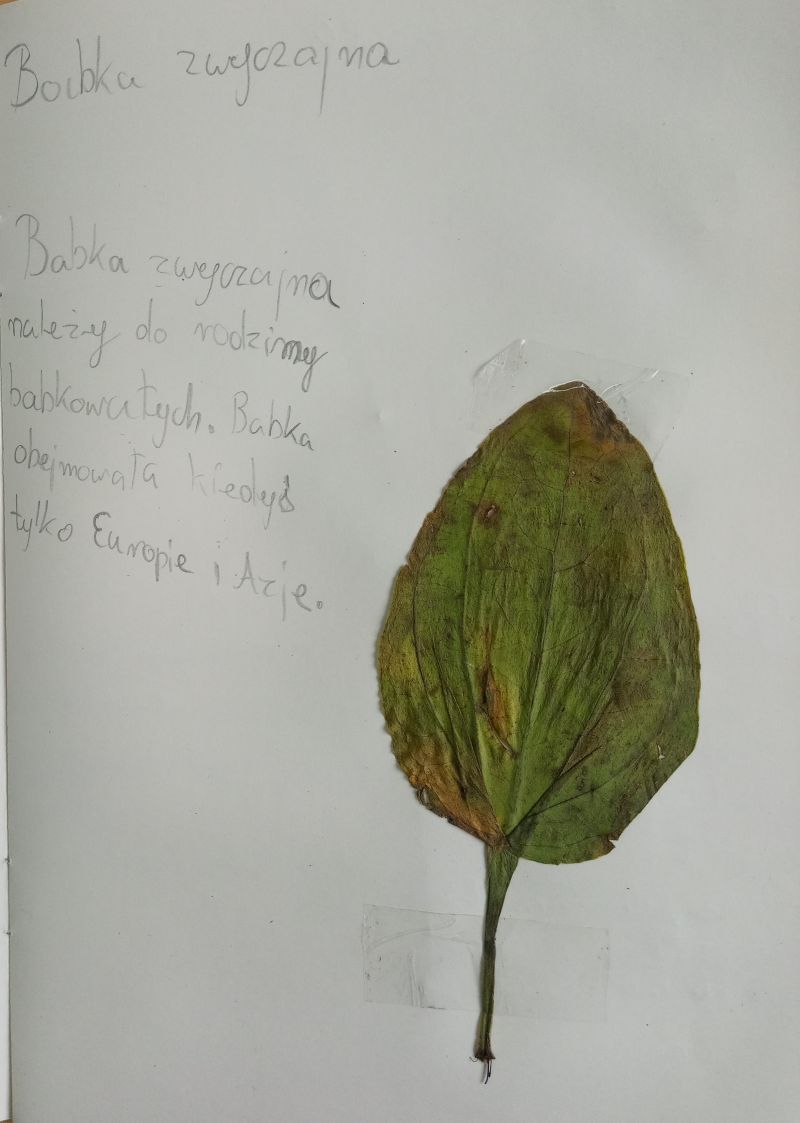 Babka zwyczajna
Babka zwyczajna
należy do rodziny
babkowatych. Babka
obejmowała kiedyś
tylko Europie i Azje.